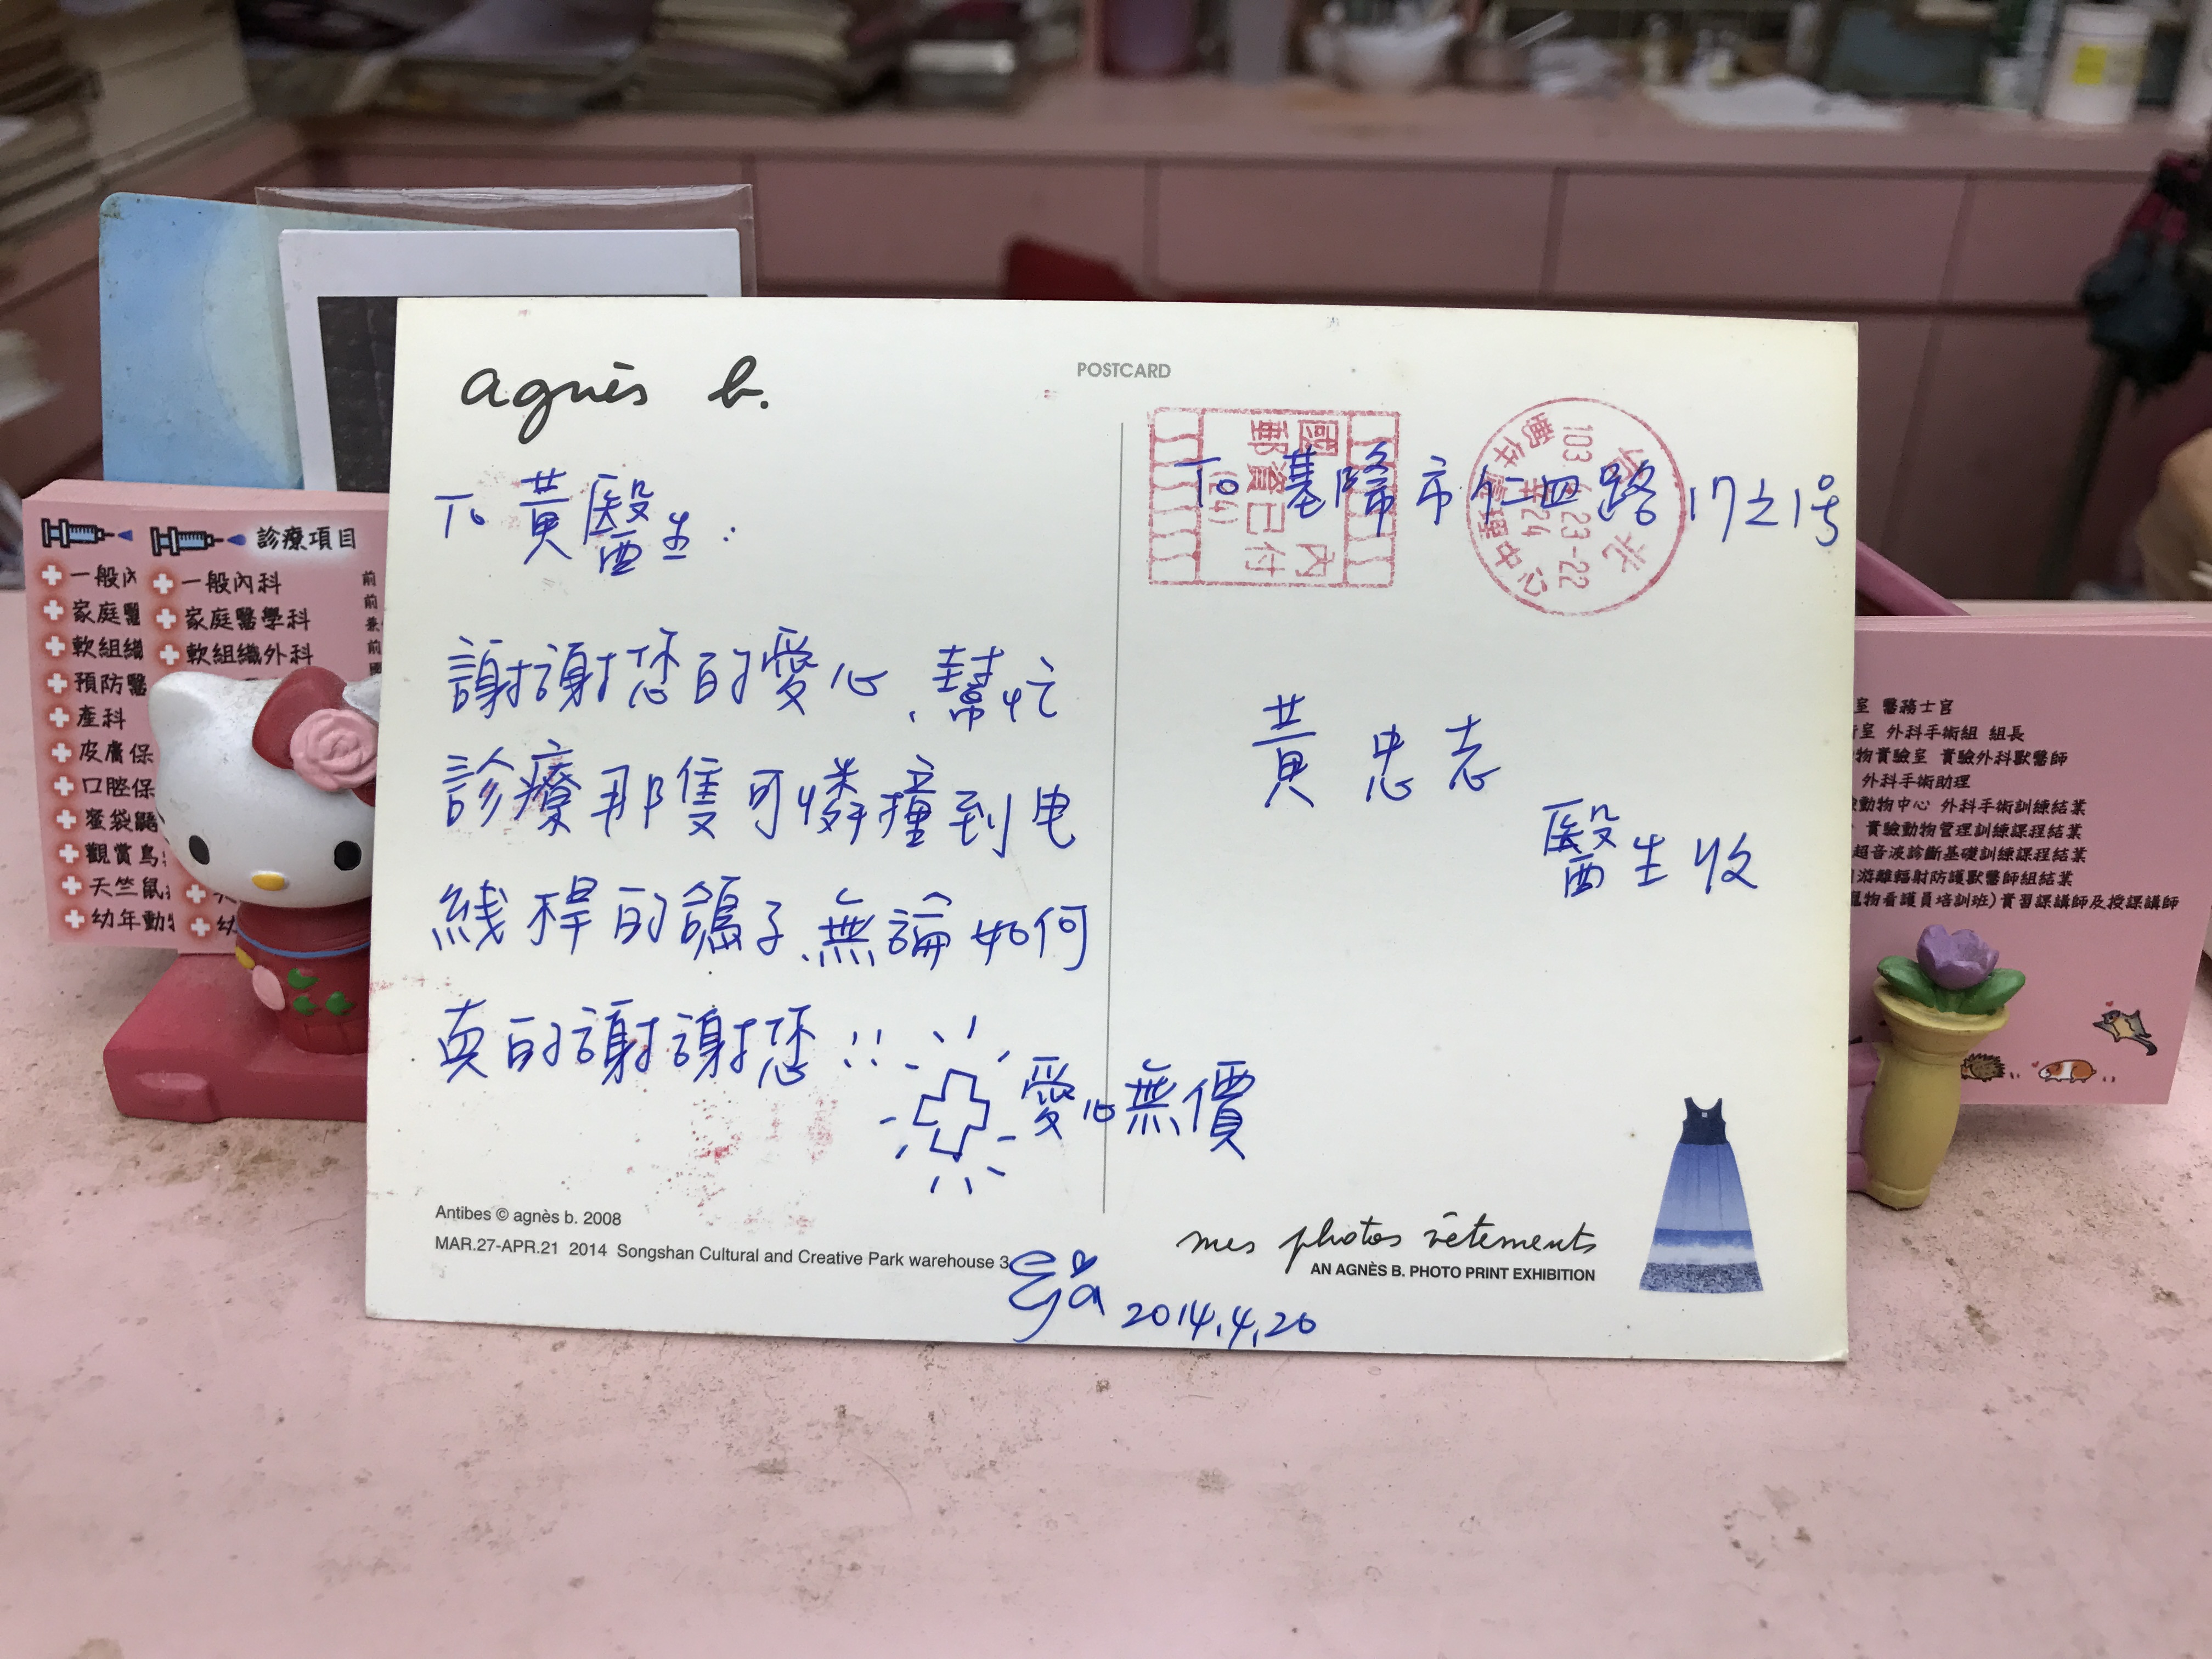 agnès b.
POSTCARD
To 黃醫生：
謝謝您的愛心、幫忙
診療那隻可憐撞到电
綫桿的鴿子、無論如何
真的謝謝您!!
愛心無價
Antibes © agnès b. 2008
MAR.27-APR.21 2014 Songshan Cultural and Creative Park warehouse 3
2014.4.20
國內
郵資已付
To 基隆市仁四路17之1号
103.
23-22
黃忠志
醫生收
mes photos vêtements
AN AGNÈS B. PHOTO PRINT EXHIBITION
一般內
家庭醫
軟組織
預防醫
產科
皮膚保
口腔保
蜜袋鼯
觀賞鳥
天竺鼠
幼年動
診療項目
一般內科
家庭醫學科
軟組織外科
室 醫務士官
室 外科手術組 組長
物實驗室 實驗外科獸醫師
外科手術助理
動物中心 外科手術訓練結業
實驗動物管理訓練課程結業
超音波診斷基礎訓練課程結業
游離輻射防護獸醫師組結業
寵物看護員培訓班)實習課講師及授課講師